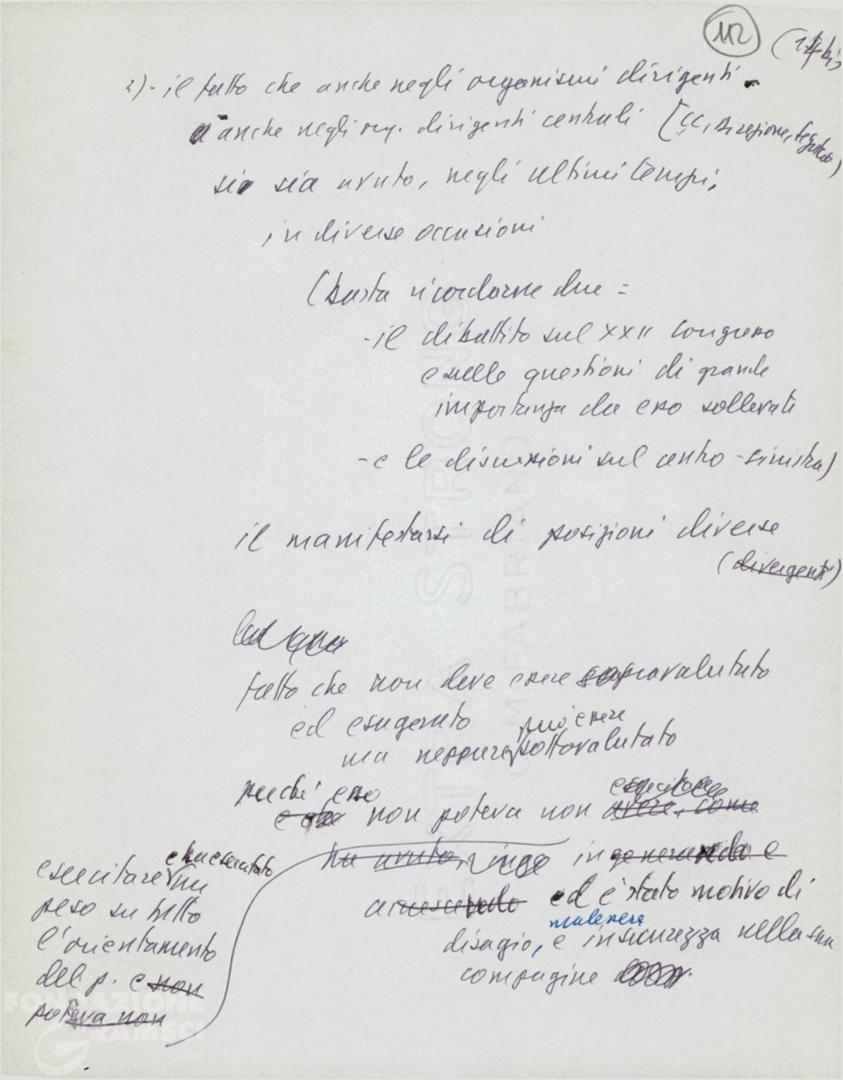 112
(14 bis
2)- il fatto che anche negli organismi dirigenti
e anche negli org. dirigenti centrali [CC, Direzione, Segreteria)
si sia avuto, negli ultimi tempi,
in diverse occasioni
(basta ricordarne due =
- il dibattito sul XXII congresso
e sulle questioni di grande
importanza da esso sollevate
- e le discussioni sul centro-sinistra)
il manifestarsi di posizioni diverse
(divergenti)
fatto che non deve essere sopravalutato
ed esagerato
può essere
ma neppure sottovalutato
perché esso
esercitare
non poteva non avere, come
ha avuto, ingenerando e
accrescendo ed è stato motivo di
malessere
disagio, e insicurezza nella sua
compagine
e ha esercitato
esercitare un
peso su tutto
l'orientamento
del p. e non
poteva non
FONDAZIONE
GRAMSCI